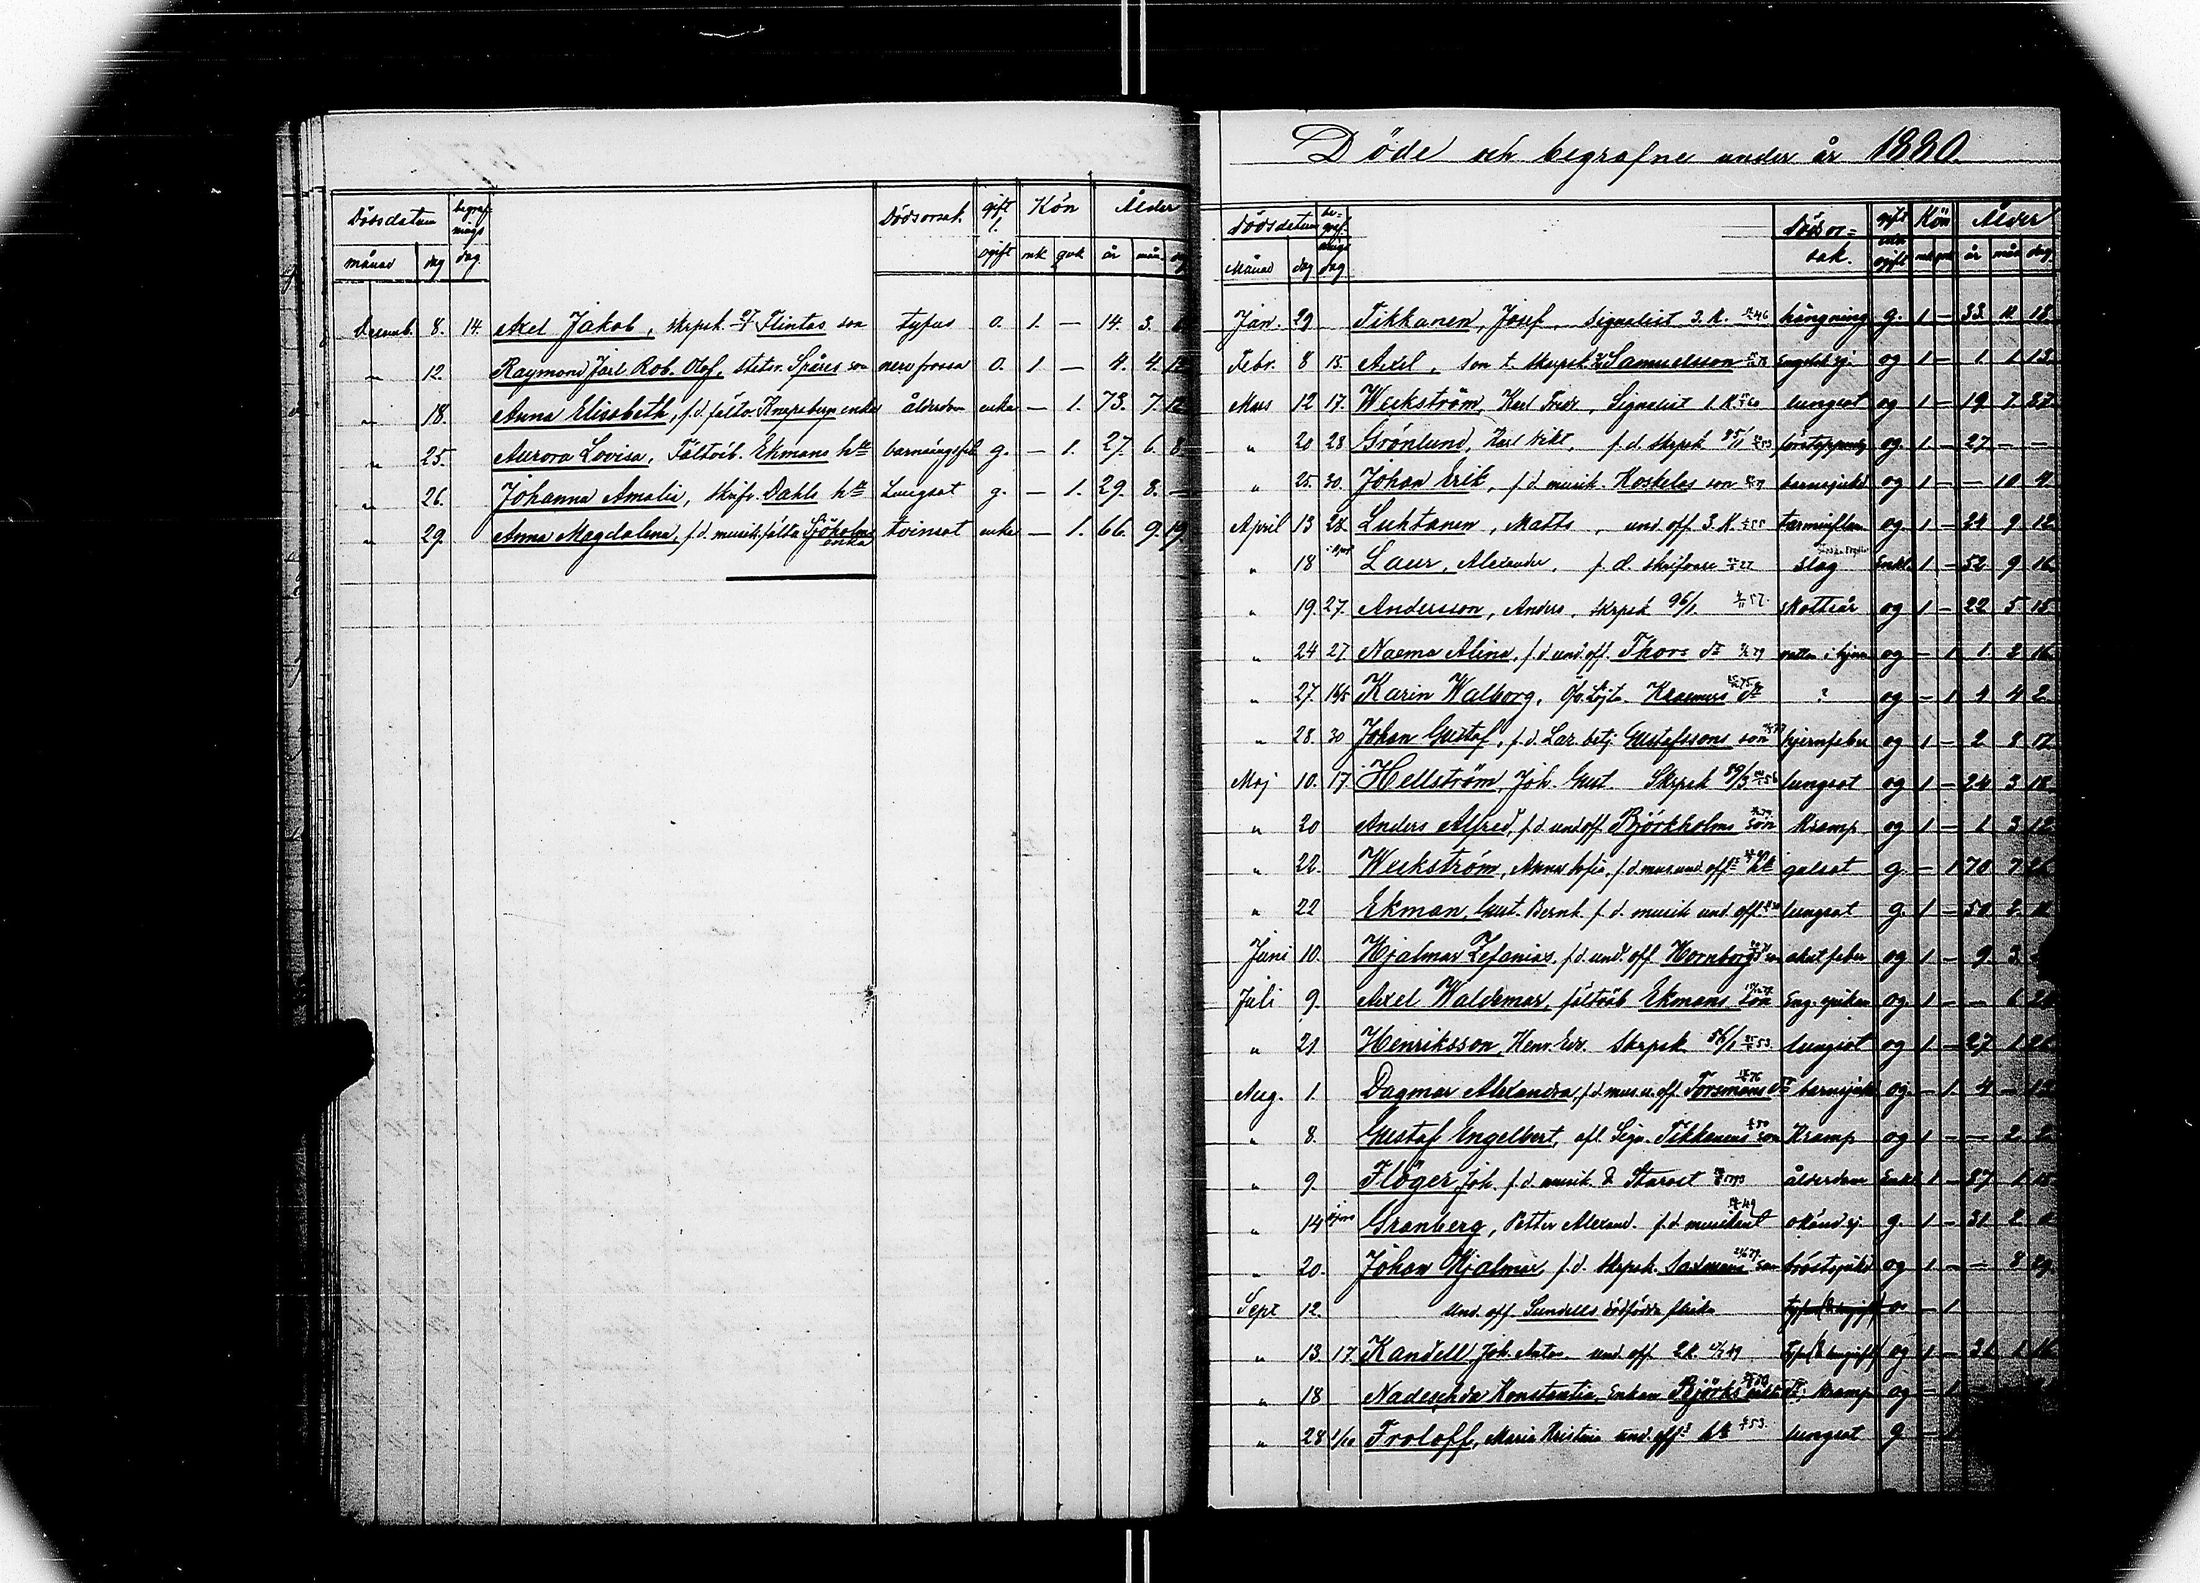 Dödsdatum begrafnings dag Dödsorsak. gift / ogift Kön Ålder
månad dag mk qvk år mån. dag
Decemb. 8. 14. Axel Jakob, skrpsk. Flintas son tyfus o. 1. — 14. 3.
" 12. Raymond Jarl Rob. Olof, Spåres son nervfrossa o. 1 — 4. 4. 12
" 18. Anna Elisabeth, f.d. fältv. enka ålderdom enka — 1. 73. 7. 12
" 25. Aurora Lovisa, Fältväb. Ekmans hu barnsängsfeb g. — 1. 27. 6. 8
" 26. Johanna Amalia, skrifv. Dahls hu Lungsot g. — 1. 29. 8. —
" 29. Anna Magdalena, f.d. musik. Sjöholms enka tvinsot enka — 1. 66. 9. 19
Döde och begrafne under år 1880.
Dödsdatum begrafnings dag Dödsorsak. gift och ogift Kön Ålder
Månad dag mk qvk år mån dag
Jan. 29 Tikkanen, Josef, Signalist 3. K. hängning g. 1 — 33 11 18
Febr. 8 15. Axel, son t. skrpsk. Samuelsson Engelsk sj. og 1 — 1 1 13
Mars 12 17. Weckström, Karl Fredr, Signalist 1. K. lungsot og 1 — 19 7 27
" 20 28 Grönlund, Karl Vikt, f.d. skrpsk 85/1 förstoppning og. 1 — 27 — —
" 25. 30. Johan Erik, f.d. musik. Koskelas son barnsjukd og 1 — — 10 4.
April 13 28. Luhtanen, Matts, und. off. 3. K. tarminflam og. 1 — 24 9 12
" 18 Laur, Alexander, f.d. skrifvare slag Enkl. 1 — 52 9 16
" 19. 27. Andersson, Anders, skrpsk 96/1. skottsår og 1 — 22 5 15
" 24 27 Naema Alina, f.d. und. off. Thors dr vatten i hjärn og — 1 1. 2 16
" 27. Karin Walborg, Öfv. Löjtn. Kraemers dr ? og — 1 4 4 2.
" 28. 30 Johan Gustaf, f.d. Laz. betj. Gustafssons son hjernfeber og 1 — 2 8 12
Maj 10. 17. Hellström, Joh. Gust. Skrpsk 89/3 lungsot og 1 — 24 3 18
" 20 Anders Alfred, f.d. und off. Björkholms son Kramp og 1 — 1 3 12
" 22. Weckström, Anna Sofia, f.d. mus. und. offs hu gulsot g. — 1 70 7
" 22 Ekman, Gust. Bernh. f.d. musik und off. lungsot g. 1 — 50 2
Juni 10. Hjalmar Zefanias, f.d. und. off Hornborgs son akut feber og 1 — 9 3
Juli 9. Axel Waldemar, fältväb Ekmans son Eng. sjukan og. 1 — — 6
" 21 Henriksson, Henr. Edv. Skrpsk. 56/1 lungsot og 1 — 27 1
Aug. 1. Dagmar Alexandra, f.d. mus. u. off. Forsmans dr barnsjukd og. — 1. 4 —
" 8. Gustaf Engelbert, afl. Sign. Tikkanens son Kramp og 1 — — 2
" 9. Flöger Joh. f.d. musik. & Starost ålderdom Enkl 1 — 87 1 15
" 14 Granberg, Petter Alexand. f.d. musikant okänd sj. g. 1 — 31 2
" 20. Johan Hjalmar, f.d. skrpsk. son bröstsjukd og 1 — — 8 29
Sept 12. Und. off Sundells dödfödda flicka o — 1
" 13. 17. Kandell Joh. Anton. und. off. 2 K. og 1 — 31 1 16
" 18 Nadeschda Konstantia, Enkan Björks dr Kramp og — 1
" 28 1/10 Froloff, Maria Kristina und. offs hu lungsot g — 1